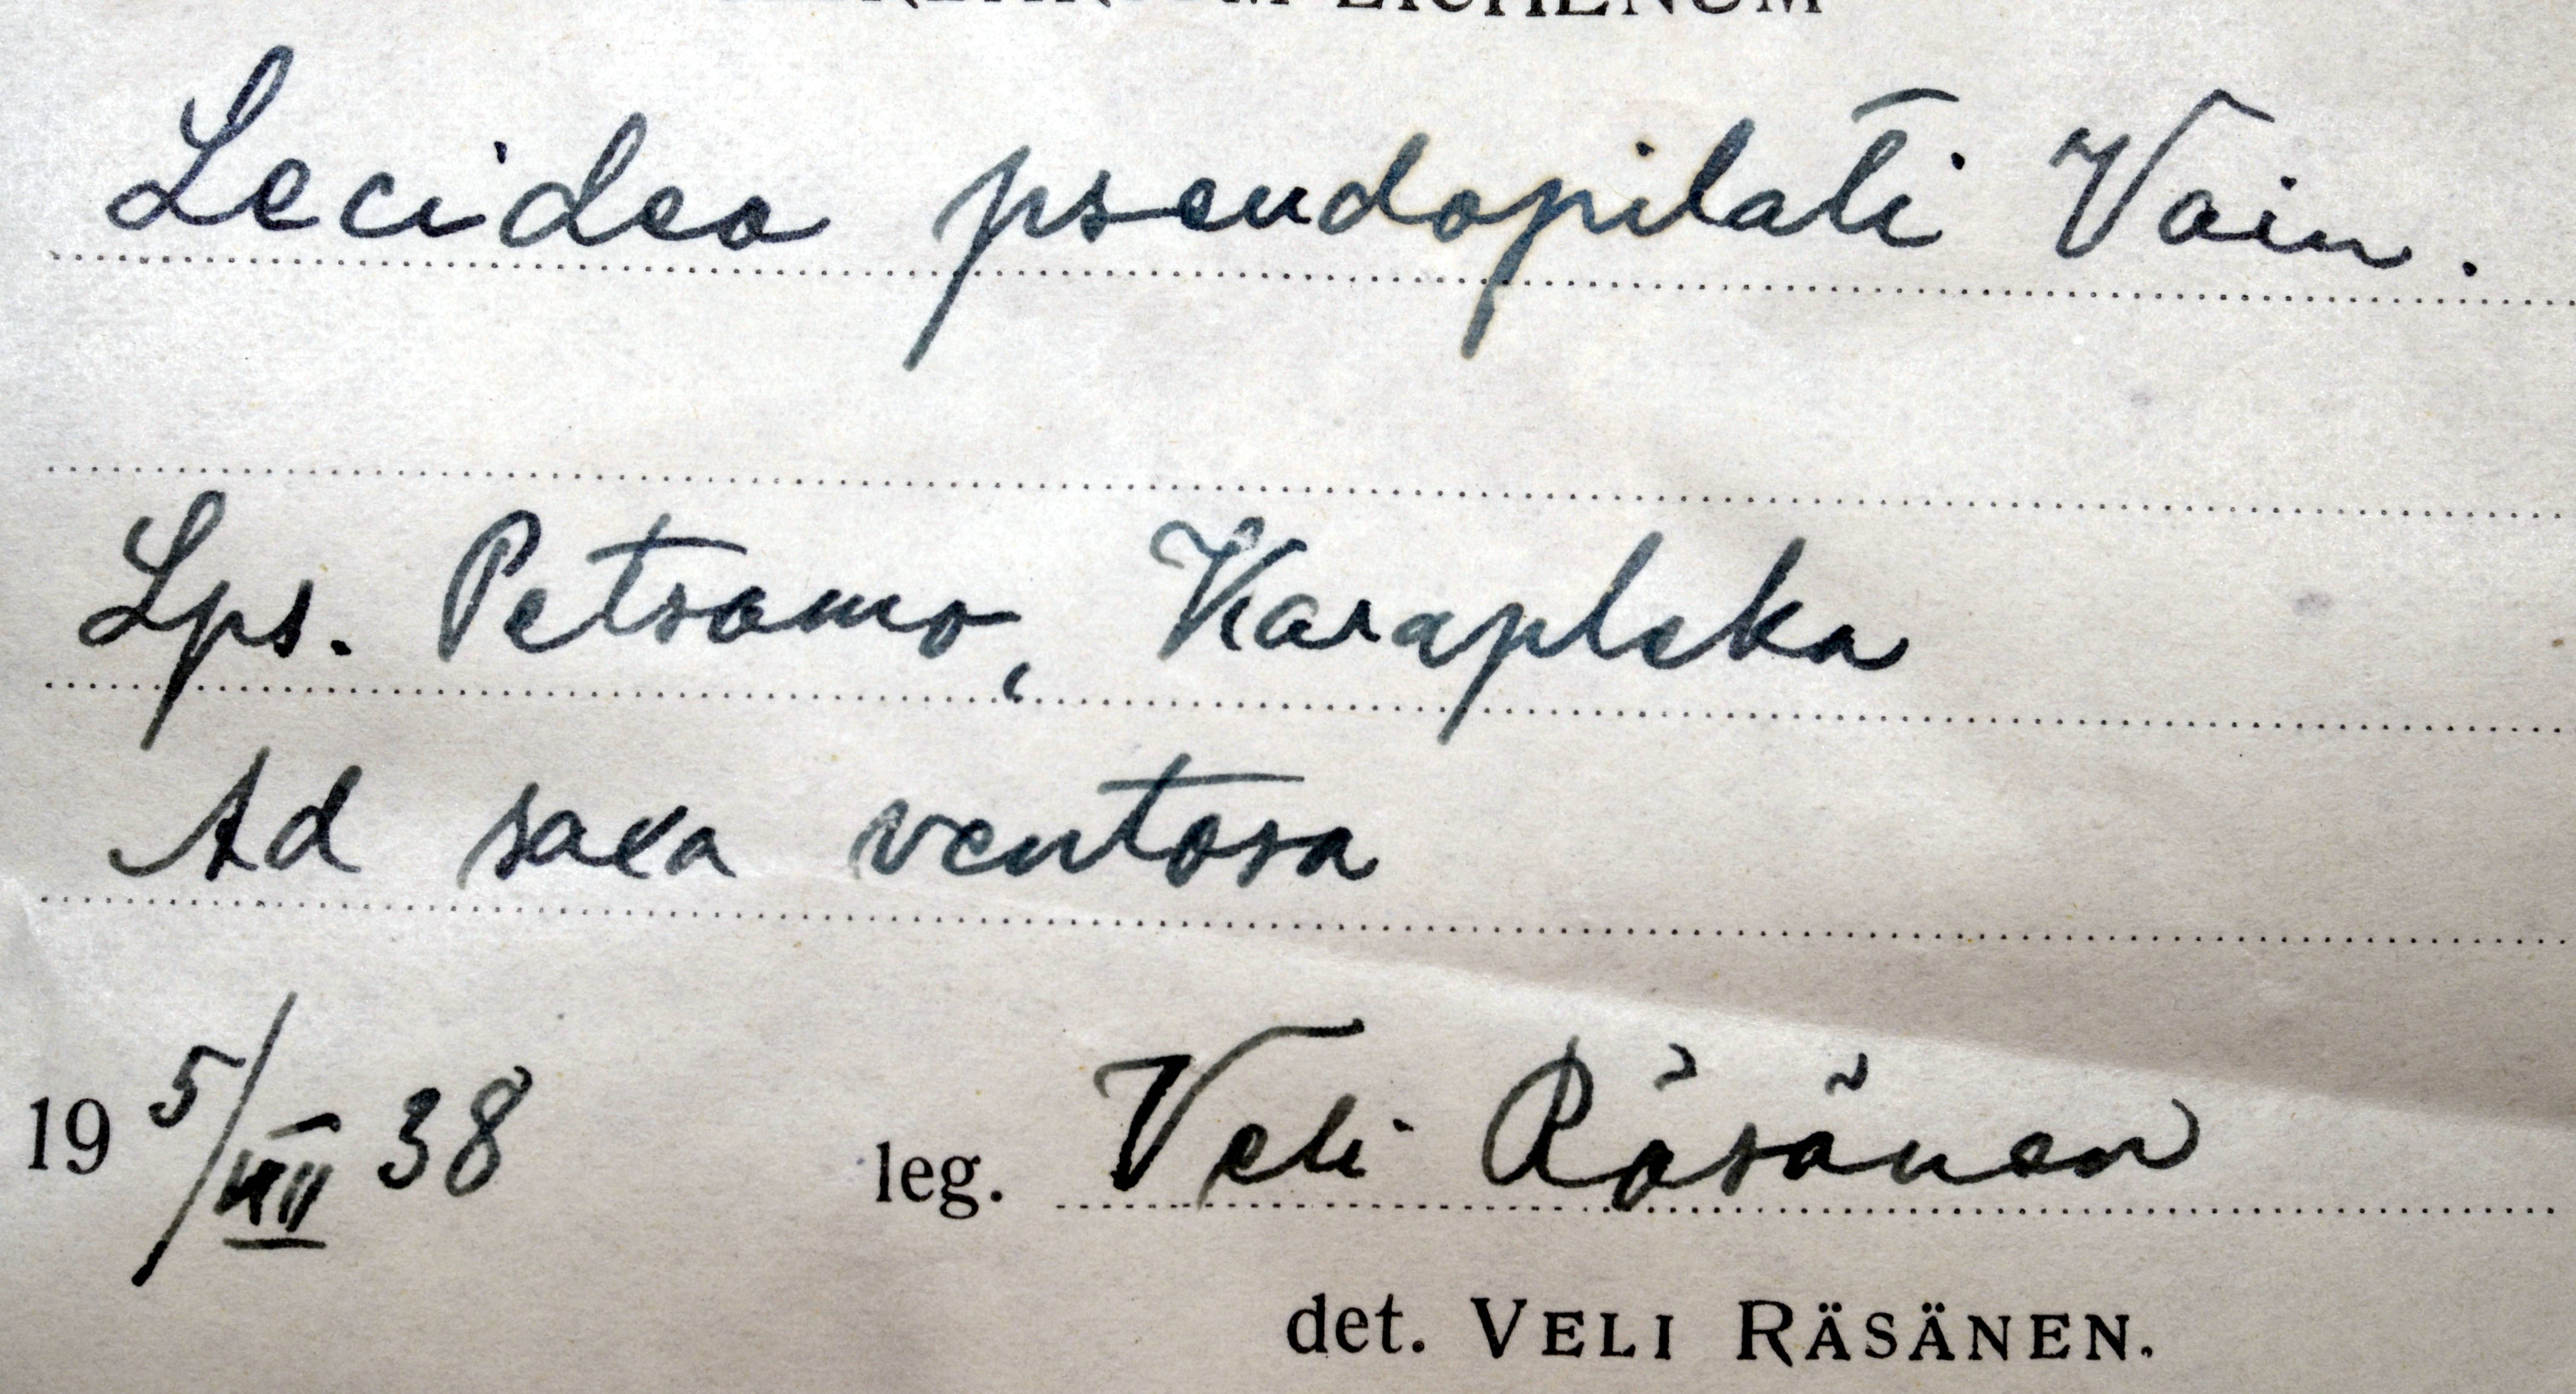 HERBARIUM LICHENUM
Lecidea pseudopilati Vain.
Lps. Petsamo, Karapleka
Ad saxa ventosa
19 5/VII 38 leg. Veli Räsänen
det. VELI RÄSÄNEN.